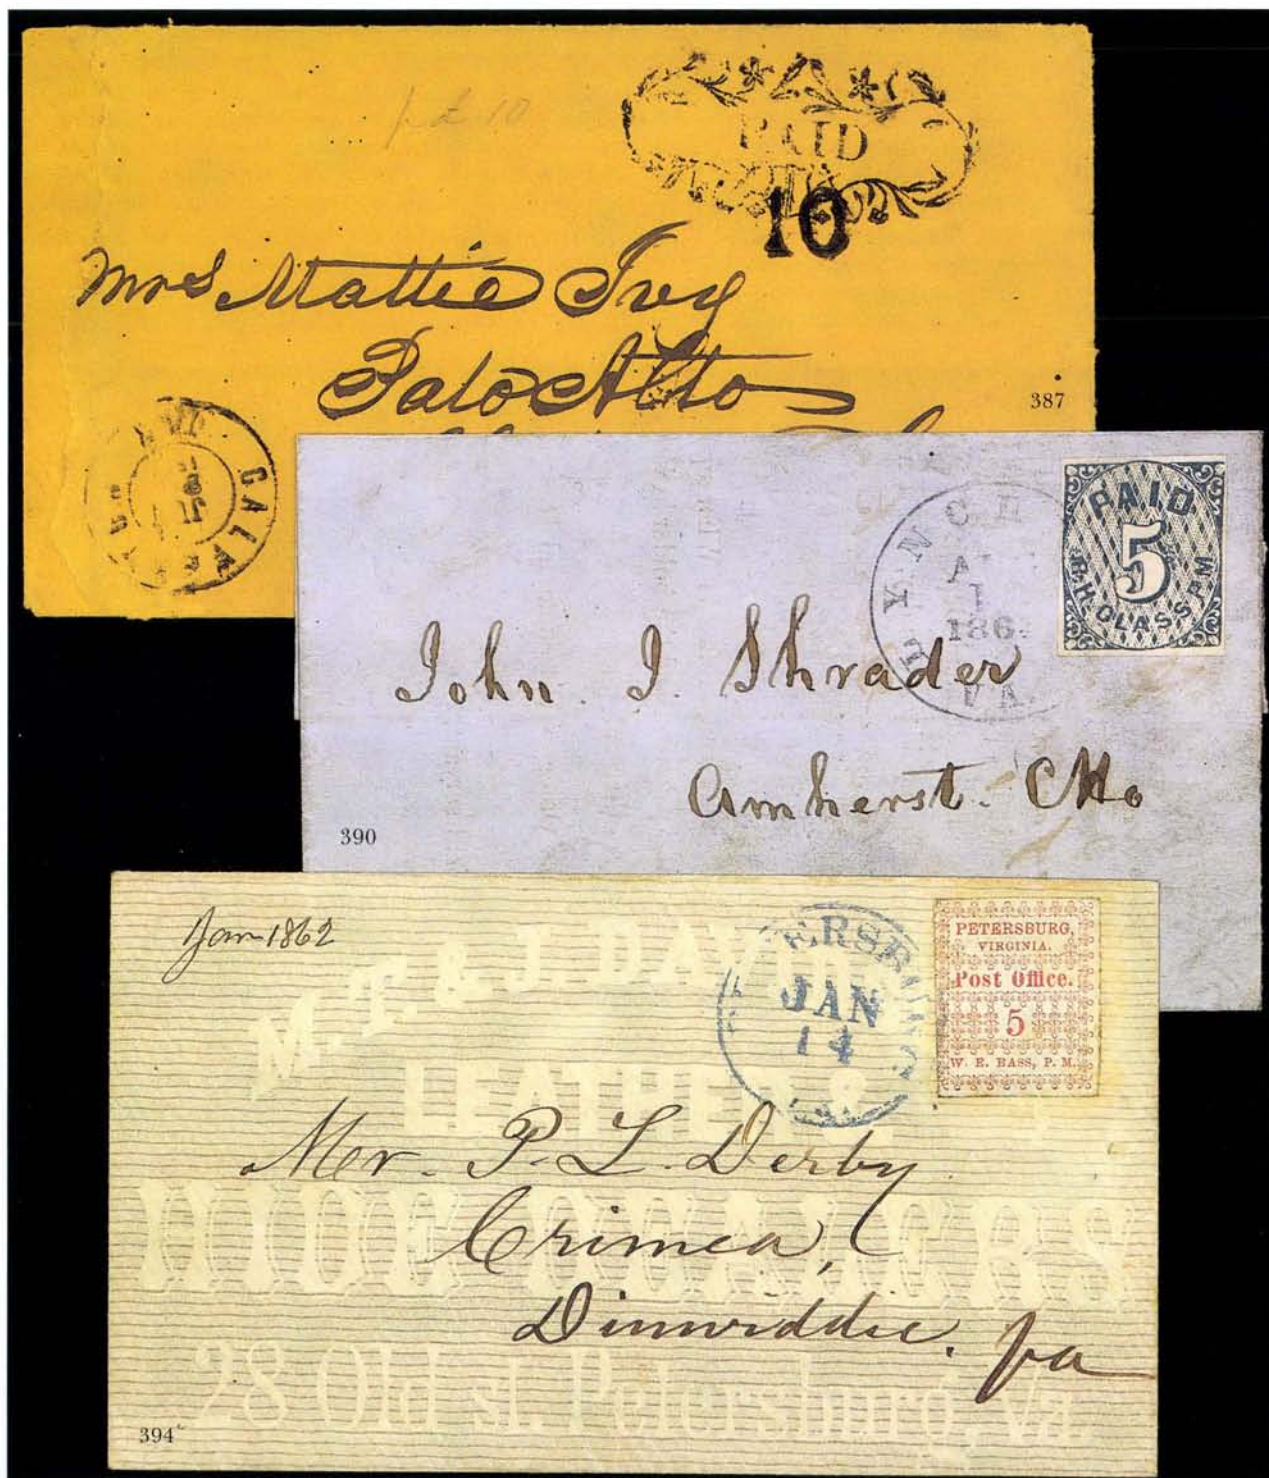 pd 10
PAID
10
Mrs Mattie Ivy
Palo Alto
387
LYNCH
VA.
PAID
5
R.H. GLASS P.M.
John. J. Shrader
Amherst. CHo
390
Jan 1862
M. T. & J. DAVIS
LEATHER &
HIDE DEALERS
28 Old st. Petersburg, Va.
PETERSBURG
JAN
14
PETERSBURG,
VIRGINIA.
Post Office.
5
W. E. BASS, P. M.
Mr. P. L. Derby
Crimea,
Dinwiddie. Va
394